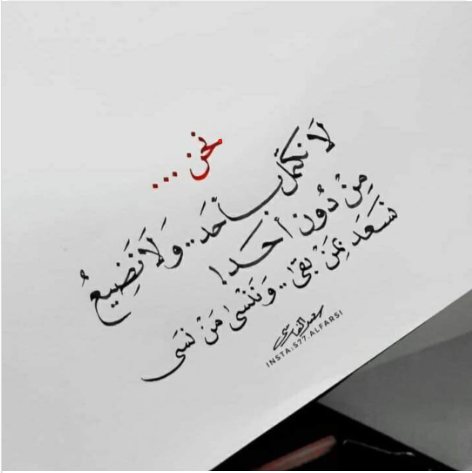 نحن ...
لَا نكتمل بأحَد .. وَلَا نَضِيعُ
مِنْ دُونِ أحَدا
نَسعَد بِمَنْ بقىَٰ .. وَننْسىٰ مَنْ نَسَى
سعيد الفارسي
INSTA:S77.ALFARSI